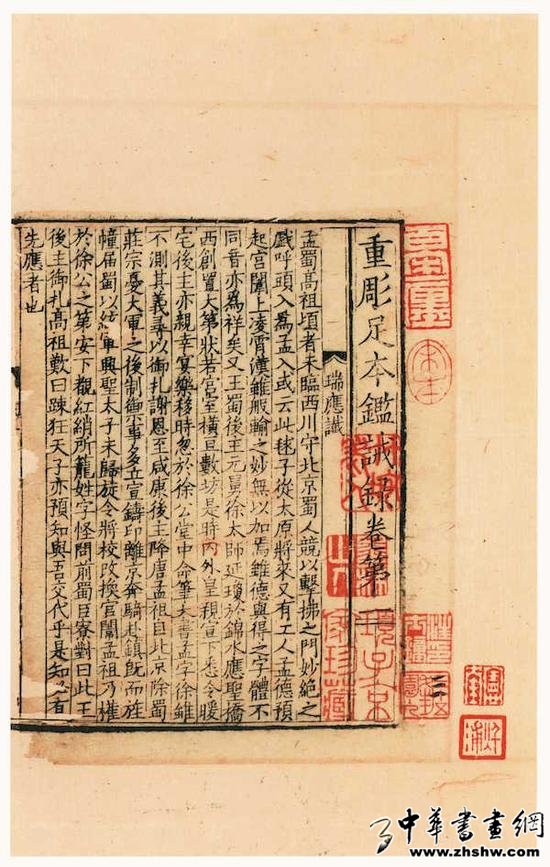 重彫足本鑑誡録卷第一
瑞應讖
孟蜀髙祖頃者未臨西川守北京蜀人競以擊拂之門妙絶之
戲呼頭入為孟入或云此毬子從太原將來又有工人孟德預
起宫闈上凌霄漢雖般輸之妙無以加焉雖德與得之字體不
同音亦為祥矣又王蜀後主元舅徐太師延瓊於錦水應聖橋
西創置大第狀若宫室橫亘數坊是時内外皇親宣下悉令暖
宅後主亦親幸宴樂移時忽於徐公堂中命筆大書孟字徐雖
不測其義尋以御札謝恩至咸康後主降唐孟祖自北京除蜀
莊宗憂大軍之後制御
幢届蜀以
興聖太子未歸旋令將校改換官闈孟祖乃權
於徐公之第安下觀紅綃所籠姓字怪問前蜀臣寮對曰此王
後主御札髙祖歎曰踈狂天子亦預知與吾交代乎是知必有
先應者也
項子京
家珍藏
中華書畫網
www.zhshw.com